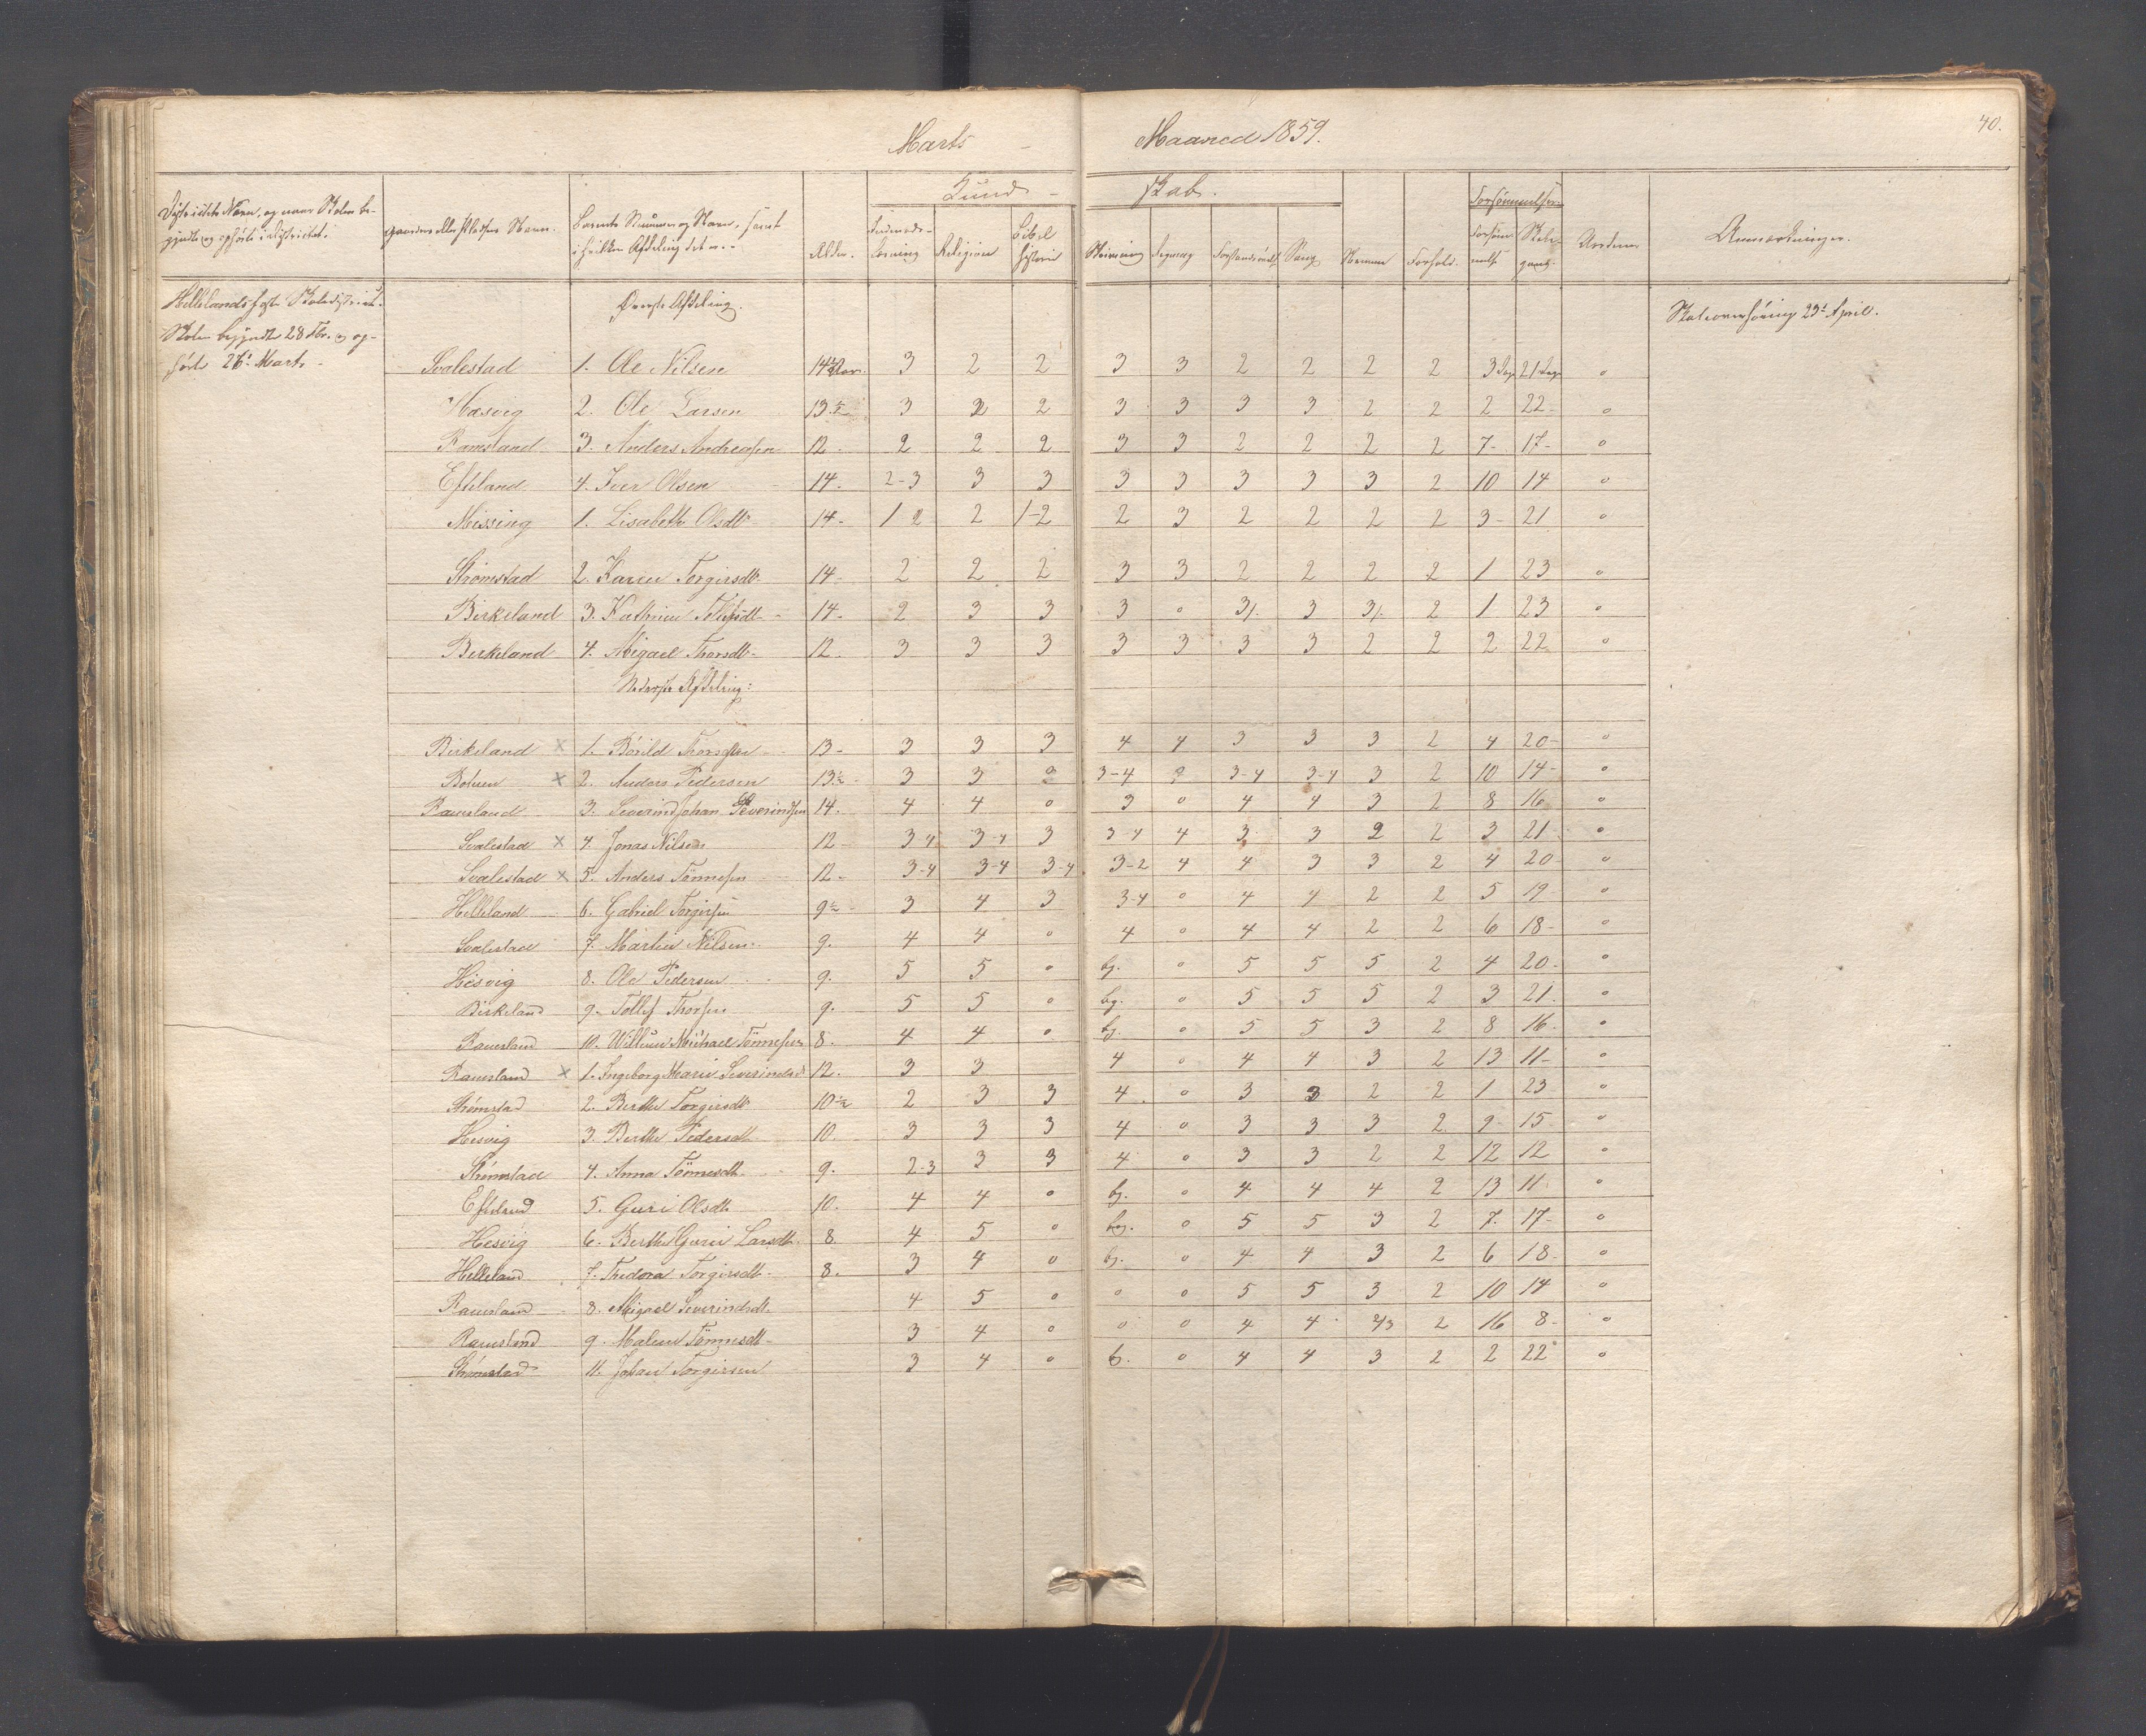 Marts - Maaned 1859.
40.
Kund - skab.
Districtets Navn, og naar Skolen be-
gyndte og ophörte i districtet.
Gaardens eller Pladsens Navn.
Barnets Nummer og Navn, samt
i hvilken Afdeling det er. -
Alder.
Indenads-
læsning
Religion
Bibel
historie
Skrivning
Regning
Forstandsøvels.
Sang
Nemme
Forhold.
Forsømmelser.
Forsöm-
melse
Skole-
gang.
Anmærkninger.
Hellelands faste Skoledistrict.
Skolen begyndte 28 Fbr. og op-
hörte 26t Marts -
Øverste Afdeling.
Skoleoverhøring 23t April.
Svalestad 1. Ole Nilsen 14½ Aar. 3 2 2 3 3 2 2 2 2 3 Dage 21 Dage 0
Hæsvig 2. Ole Larsen 13½ 3 2 2 3 3 3 3 2 2 2 22 - 0
Ramsland 3. Anders Andreassen 12 - 2 2 2 3 3 2 2 2 2 7 - 17 - 0
Efteland 4. Iver Olsen 14 - 2-3 3 3 3 3 3 3 3 2 10 14 0
Missing 1. Lisabeth Olsdtr 14 - 1 2 2 1-2 2 3 2 2 2 2 3 - 21 0
Strömstad 2. Karen Torgirsdtr. 14 - 2 2 2 3 3 2 2 2 2 1 23 0
Birkeland 3. Kathrine Tollefsdtr - 14 - 2 3 3 3 0 3/. 3 3/. 2 1 23 0
Birkeland 4. Abigael Thorsdtr - 12 - 3 3 3 3 3 3 3 2 2 2 22 0
Nederste Afdeling:
Birkeland × 1. Bårild Thorsen 13 - 3 3 3 4 4 3 3 3 2 4 20 - 0
× 2. Anders Pedersen 13½ - 3 3 3-4 3-4 3-4 3 2 10 14 - 0
Ramsland 3. Severind Johan Severindsen 14. 4 4 0 3 0 4 4 3 2 8 16 0
Svalestad × 4. Jonas Nilsen 12 - 3 4 3-4 3 3-4 4 3 3 2 2 3 21 0
Svalestad × 5. Anders Tönnesen 12 - 3-4 3-4 3-4 3-2 4 4 3 3 2 4 20 0
Helleland 6. Gabriel Torgirsen 9½ - 3 4 3 3-4 0 4 4 2 2 5 19 0
Svalestad 7. Martin Nilsen - 9. 4 4 0 4 0 4 4 2 2 6 18 - 0
Hesvig 8. Ole Pedersen 9. 5 5 0 bg. 0 5 5 5 2 4 20 - 0
Birkeland 9. Tollef Thorsen 9. 5 5 0 bg. 0 5 5 5 2 3 21. 0
Ramsland 10. Willum Michael Tönnesen 8. 4 4 0 bg. 0 5 5 3 2 8 16 - 0
Ramsland × 1. Ingeborg Marie Severindsdtr 12. 3 3 4 0 4 4 3 2 13 11 - 0
Strømstad 2. Berthe Torgirsdtr 10½ 2 3 3 4 0 3 3 2 2 1 23 0
Hesvig 3. Berthe Pedersdtr. 10. 3 3 3 4 0 3 3 3 2 9 - 15 - 0
Strömstad 4. Anna Tönnesdtr. 9. 2-3 3 3 4 0 3 3 2 2 12 12 0
Efteland 5. Guri Olsdtr. 10. 4 4 0 bg. 0 4 4 4 2 13 11 0
Hesvig 6. Berthe Gurie Larsdtr. 8 4 5 0 bg. 0 5 5 3 2 7. 17 - 0
Helleland 7. Thedora Torgirsdtr. 8. 3 4 0 bg. 0 4 4 3 2 6 18 - 0
Ramsland 8. Abigael Severindsdtr. 4 5 0 0 0 5 5 3 2 10 14 0
Ramsland 9. Malene Tönnesdtr - 3 4 0 0 0 4 4 2/3 2 16 8 - 0
Strömstad 11. Johan Torgirsen 3 4 0 b. 0 4 4 3 2 2 22 0